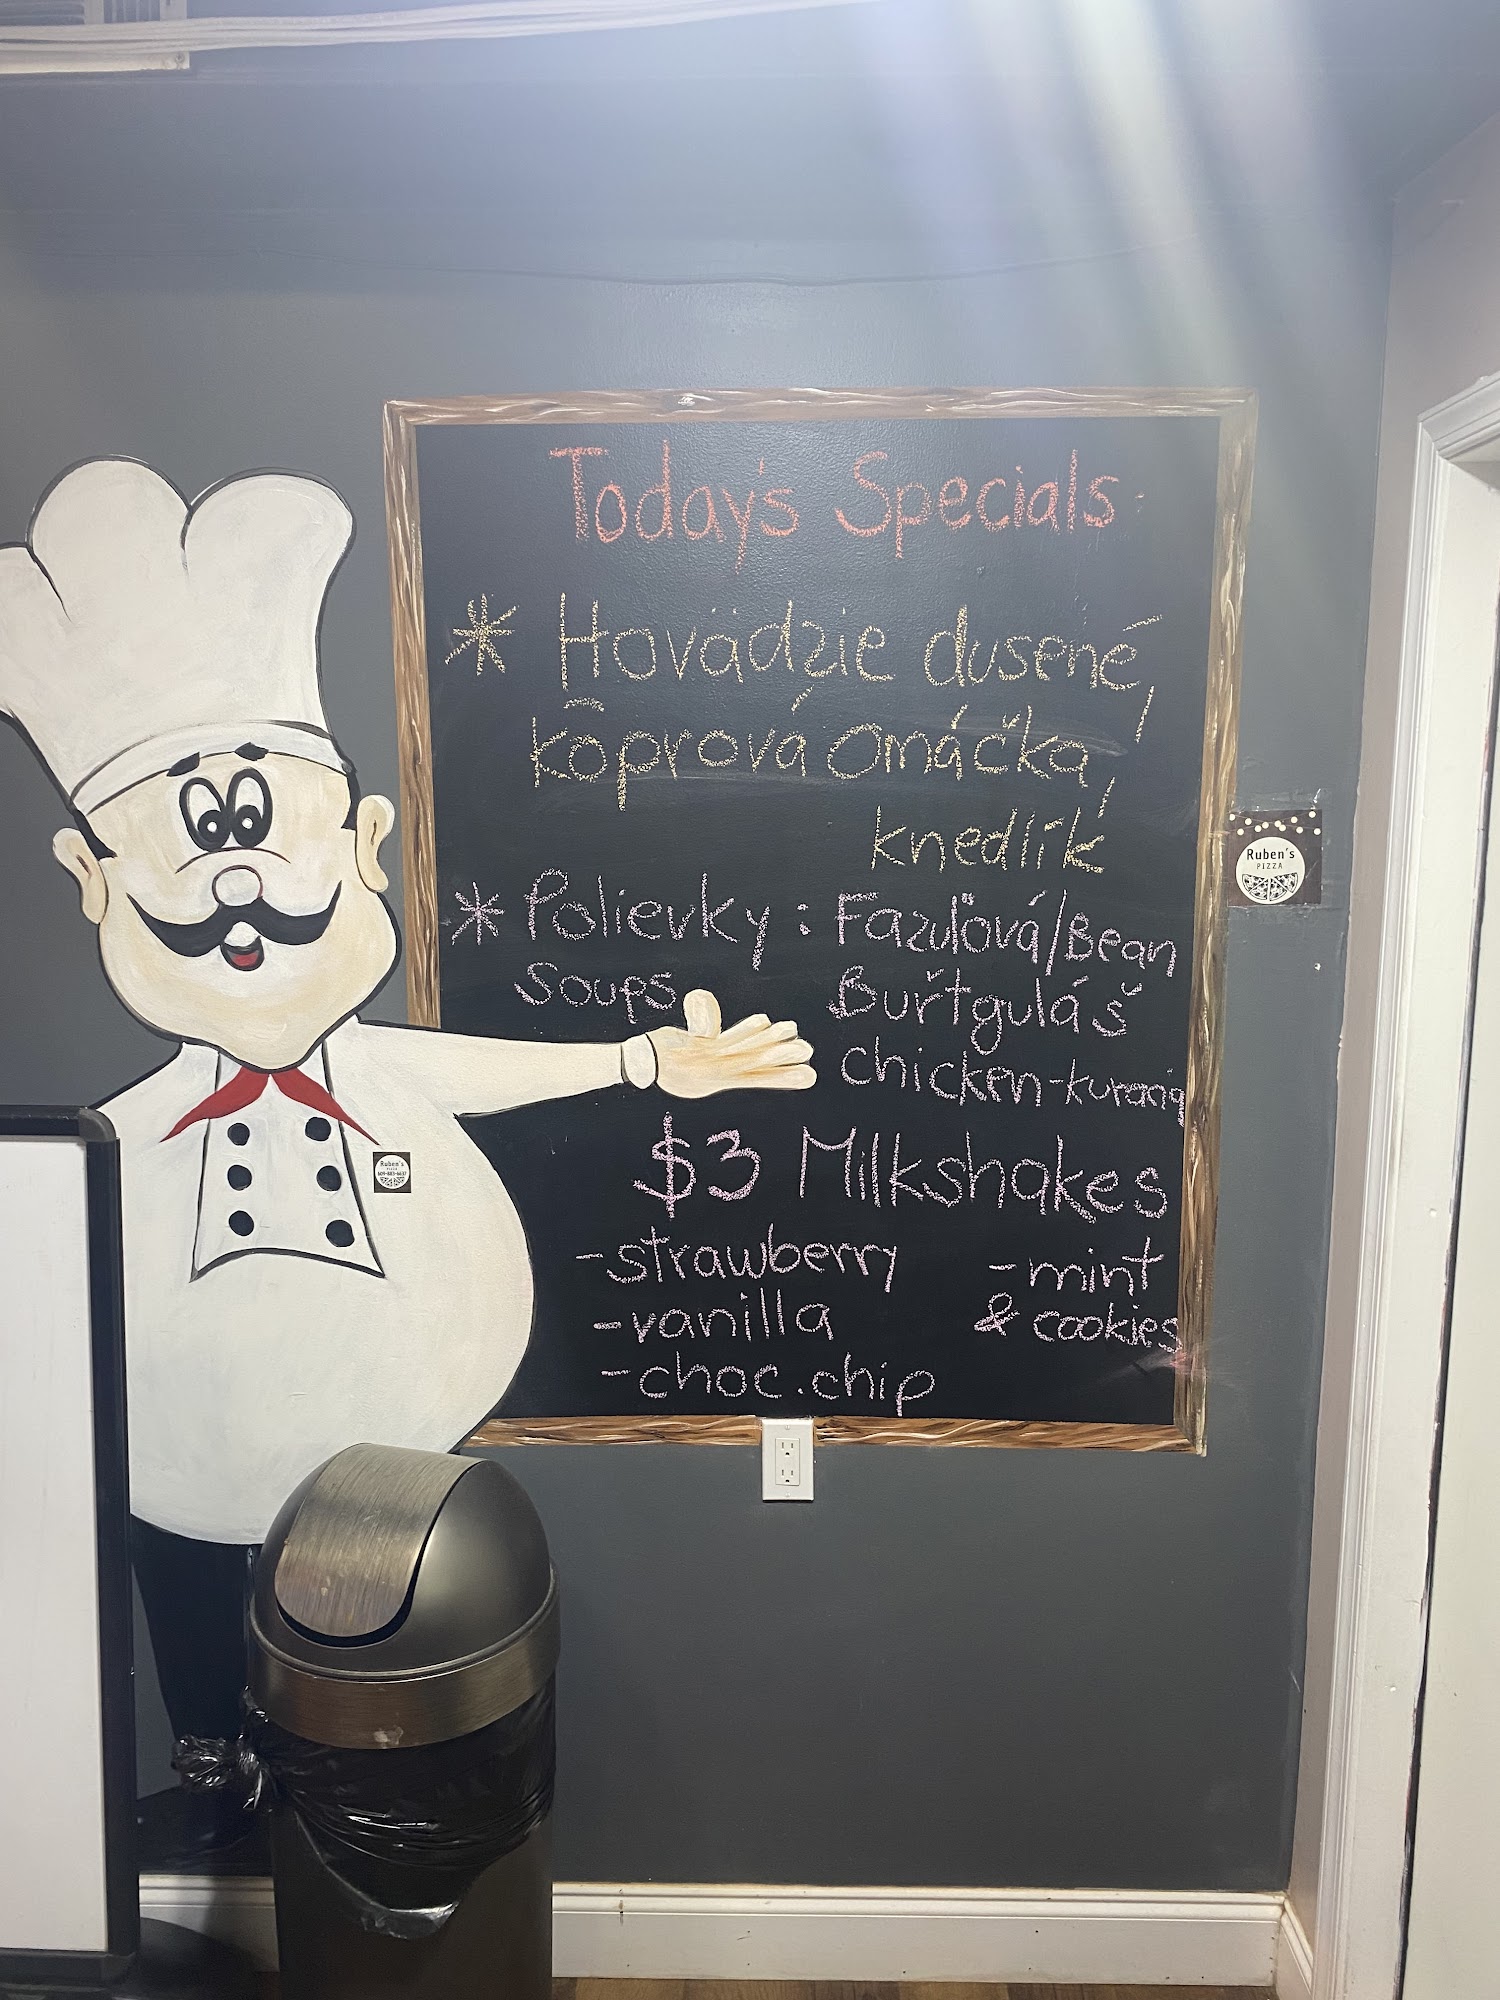 Today's Specials:
* Hovädzie dusené,
kôprová omáčka,
knedlík
* Polievky: Fazuľová/Bean
Soups
Buřtguláš
chicken-kurací
$3 Milkshakes
-strawberry
-vanilla
-choc.chip
-mint
& cookies
Ruben's
PIZZA
Ruben's
PIZZA
609-883-6637